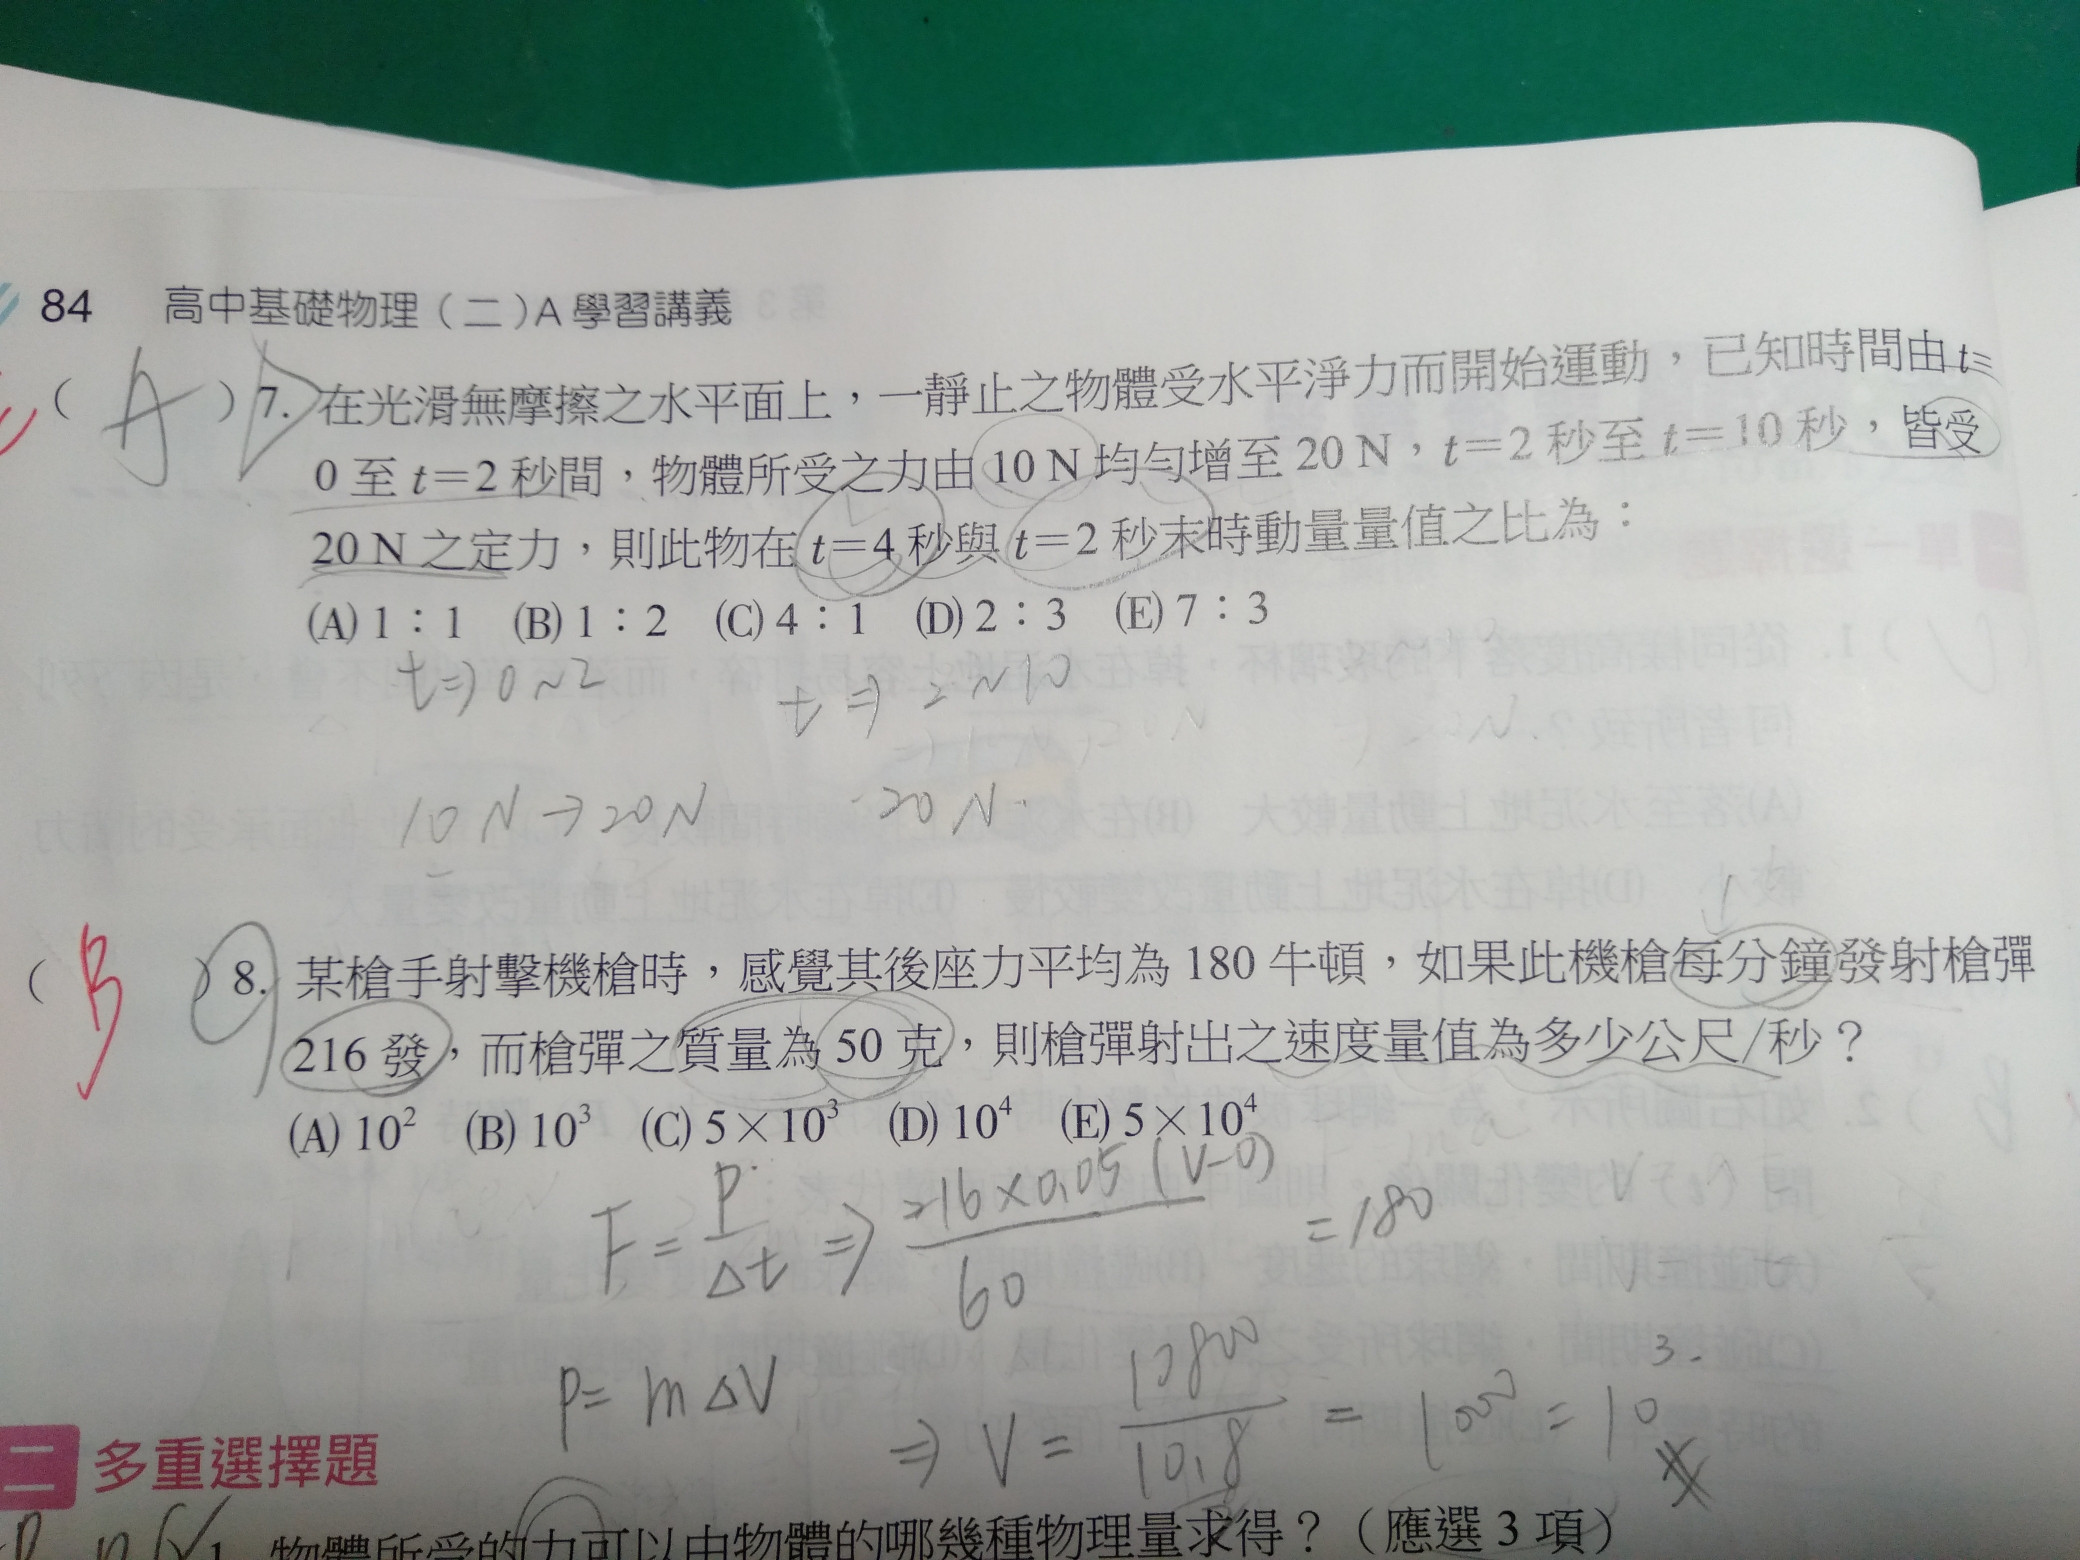 84 高中基礎物理（二）A 學習講義
( A ) 7. 在光滑無摩擦之水平面上，一靜止之物體受水平淨力而開始運動，已知時間由 t=
0 至 t=2 秒間，物體所受之力由 10 N 均勻增至 20 N，t=2 秒至 t=10 秒，皆受
20 N 之定力，則此物在 t=4 秒與 t=2 秒末時動量量值之比為：
(A) 1：1 (B) 1：2 (C) 4：1 (D) 2：3 (E) 7：3
t⇒0~2 t⇒2~10
10 N→20 N 20 N
( B ) 8. 某槍手射擊機槍時，感覺其後座力平均為 180 牛頓，如果此機槍每分鐘發射槍彈
216 發，而槍彈之質量為 50 克，則槍彈射出之速度量值為多少公尺/秒？
(A) 10² (B) 10³ (C) 5×10³ (D) 10⁴ (E) 5×10⁴
F = P/Δt ⇒ 216×0.05(V-0)/60 = 180
P= mΔV
⇒ V = 10800/10.8 = 1000 = 10³
二 多重選擇題
1. 物體所受的力可以由物體的哪幾種物理量求得？（應選 3 項）